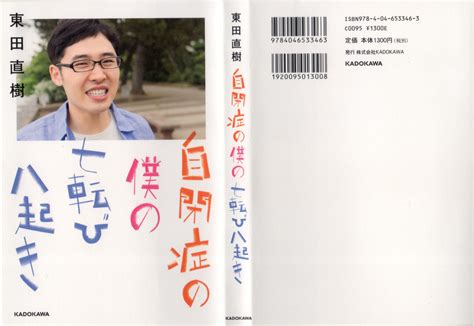 東田直樹
自閉症の
僕の
七転び
八起き
KADOKAWA
東田直樹
自閉症の僕の七転び八起き
KADOKAWA
9784046533463
1920095013008
ISBN978-4-04-653346-3
C0095 ¥1300E
定価 本体1300円(税別)
発行 株式会社KADOKAWA
KADOKAWA